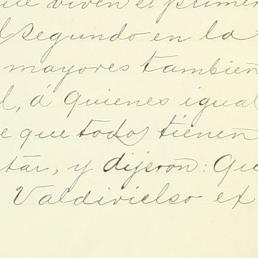 que viven el primer
l segundo en la
mayores también
l, á quienes igual
e que todos tienen
tar, y dijeron: Que
Valdivielso ex